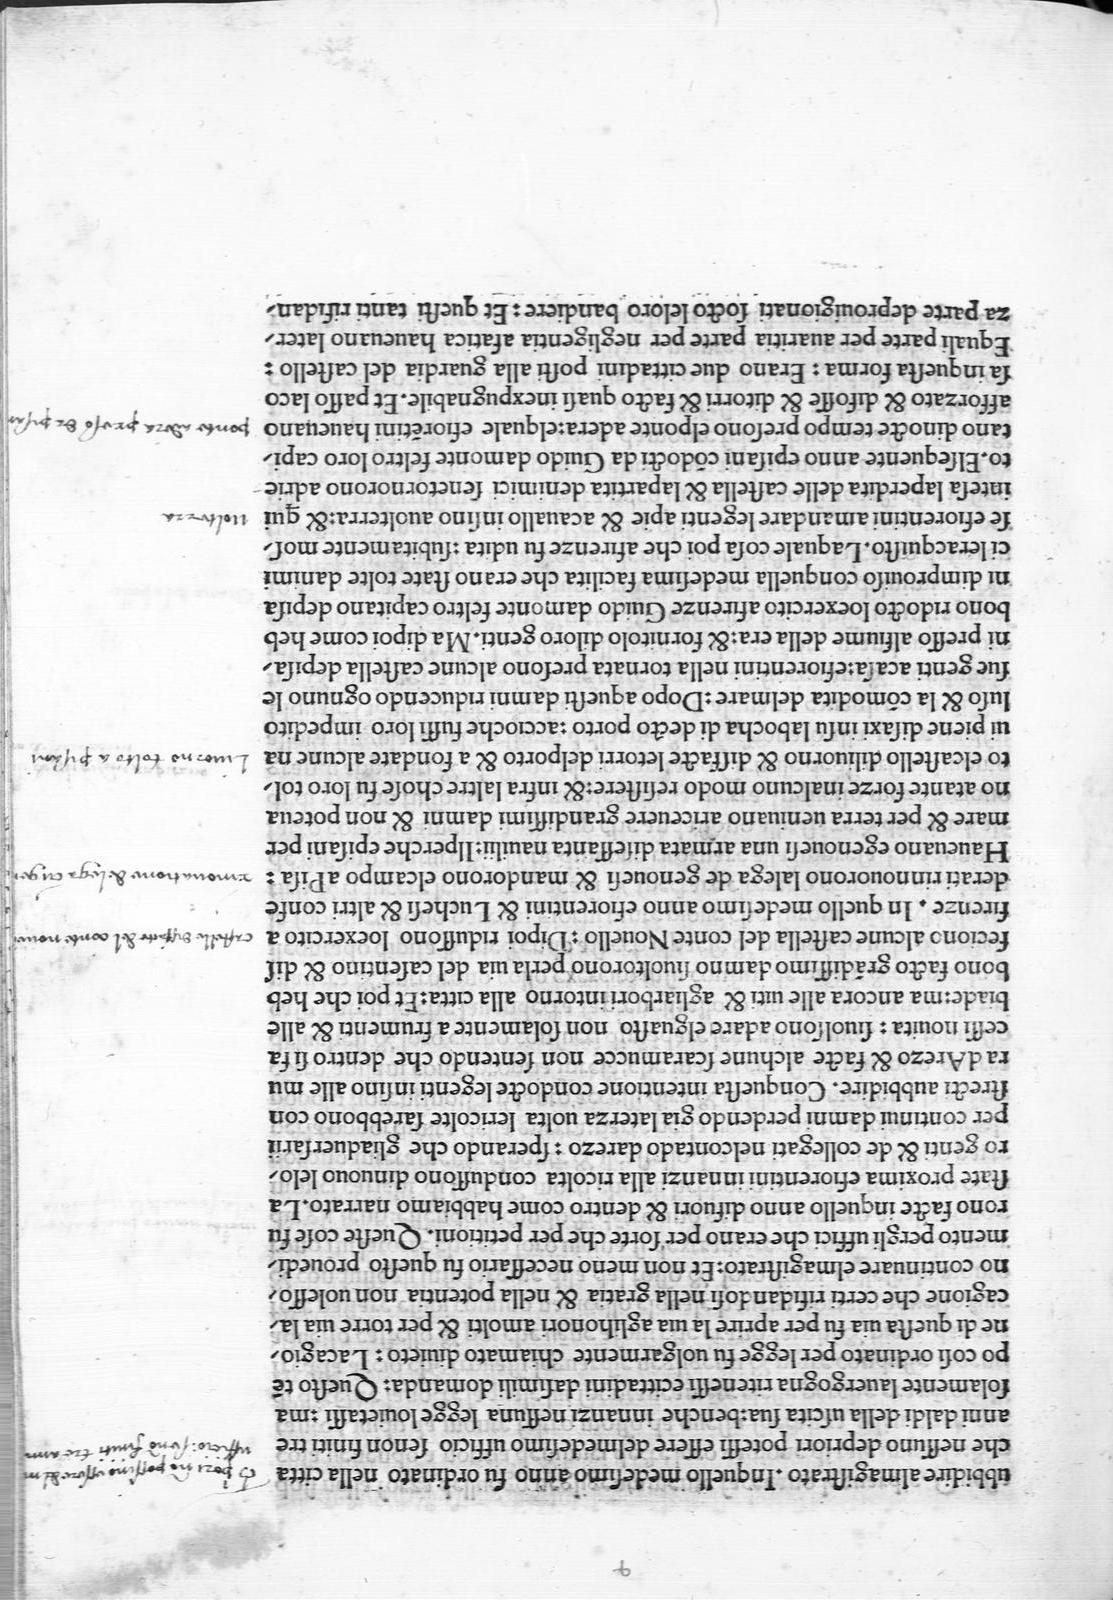 ubbidire almagistrato. Inquello medesimo anno fu ordinato nella citta
che nessuno depriori potessi essere delmedesimo ufficio senon finiti tre
anni daldi della uscita sua: benche innanzi nessuna legge louietassi: ma
solamente lauergogna ritenessi ecittadini dasimili domanda: Questo tē
po cosi ordinato per legge fu uolgarmente chiamato diuieto: Lacagio,
ne di questa uia fu per aprire la uia aglihonori amolti & per torre uia la,
cagione che certi rifidandosi nella gratia & nella potentia non uolesso,
no continuare elmagistrato: Et non meno necessario fu questo prouedi,
mento pergli uffici che erano per sorte che per petitioni. Queste cose fu
rono facte inquello anno difuori & dentro come habbiamo narrato. La
state proxima efiorentini innanzi alla ricolta condussono dinuouo lelo,
ro genti & de collegati nelcontado darezo: sperando che gliaduersarii
per continui damni perdendo gia laterza uolta lericolte sarebbono con
strecti aubbidire. Conquesta intentione condocte legenti insino alle mu
ra dArezo & facte alchune scaramucce non sentendo che dentro si fa
cessi nouita: siuolsono adare elguasto non solamente a frumenti & alle
biade: ma ancora alle uiti & agliarbori intorno alla citta: Et poi che heb
bono facto grādissimo damno siuoltorono perla uia del casentino & dif
feciono alcune castella del conte Nouello: Dipoi ridussono loexercito a
firenze. In quello medesimo anno efiorentini & Luchesi & altri confe
derati rinnouorono lalega de genouesi & mandorono elcampo a Pisa:
Haueuano egenouesi una armata disessanta nauilii: Ilperche episani per
mare & per terra ueniuano ariceuere grandissimi damni & non poteua
no atante forze inalcuno modo resistere: & infra laltre chose fu loro tol,
to elcastello diliuorno & disfacte letorri delporto & a fondate alcune na
ui piene disaxi insu labocha di decto porto: accioche fussi loro impedito
luso & la cōmodita delmare: Dopo aquesti damni riducendo ognuno le
sue genti acasa: efiorentini nella tornata presono alcune castella depisa,
ni presso alfiume della era: & fornitolo diloro genti. Ma dipoi come heb
bono ridocto loexercito afirenze Guido damonte feltro capitano depisa
ni dimprouiso conquella medesima facilita che erano state tolte danimi
ci leracquisto. Laquale cosa poi che afirenze fu udita: subitamente mos,
se efiorentini amandare legenti apie & acauallo insino auolterra: & qui
intesa laperdita delle castella & lapartita denimici senetornorono adrie
to. Elsequente anno episani cōdocti da Guido damonte feltro loro capi,
tano dinocte tempo presono elponte adera: elquale efiorētini haueuano
afforzato & difosse & ditorri & facto quasi inexpugnabile. Et passo laco
sa inquesta forma: Erano due cittadini posti alla guardia del castello:
Equali parte per auaritia parte per negligentia afatica haueuano later,
za parte deprouigionati socto leloro bandiere: Et questi tanti rifidan,
priori nō possino essere del m
ufficio: se nō finiti tre anni
castella disfatte del conte nouello
rinnouatione de lega cū gen
Liuorno tolto a pisani
Uolterra
ponte adera preso da pisan